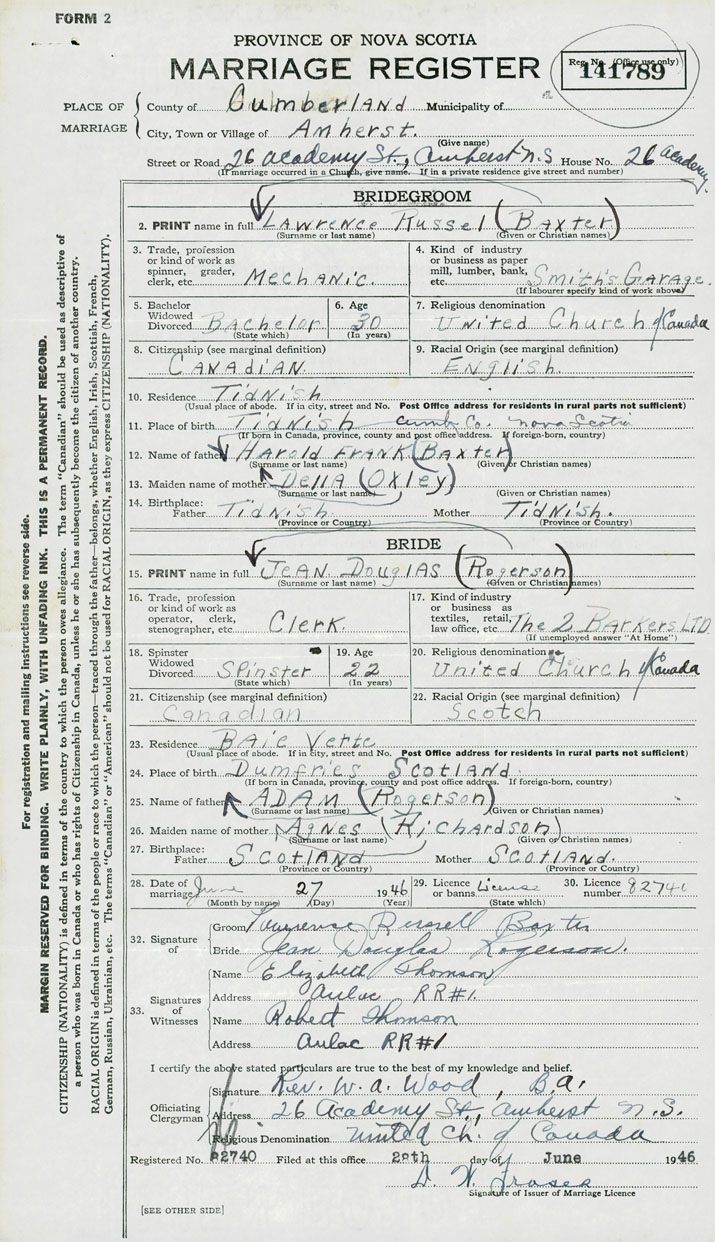 FORM 2
PROVINCE OF NOVA SCOTIA
MARRIAGE REGISTER
Reg. No. (Office use only)
141789
PLACE OF MARRIAGE
County of Cumberland Municipality of
City, Town or Village of Amherst.
(Give name)
Street or Road 26 Academy St., Amherst N.S House No. 26 Academy
(If marriage occurred in a Church, give name. If in a private residence give street and number)
BRIDEGROOM
2. PRINT name in full Lawrence Russel (Baxter)
(Surname or last name) (Given or Christian names)
3. Trade, profession or kind of work as spinner, grader, clerk, etc. Mechanic.
4. Kind of industry or business as paper mill, lumber, bank, etc. Smith's Garage.
(If labourer specify kind of work above)
5. Bachelor Widowed Divorced Bachelor
(State which)
6. Age 30
(In years)
7. Religious denomination United Church of Canada
8. Citizenship (see marginal definition) CANADIAN.
9. Racial Origin (see marginal definition) English.
10. Residence Tidnish
(Usual place of abode. If in city, street and No. Post Office address for residents in rural parts not sufficient)
11. Place of birth Tidnish Cumb. Co. Nova Scotia
(If born in Canada, province, county and post office address. If foreign-born, country)
12. Name of father Harold Frank (Baxter)
(Surname or last name) (Given or Christian names)
13. Maiden name of mother Della (Oxley)
(Surname or last name) (Given or Christian names)
14. Birthplace: Father Tidnish Mother Tidnish.
(Province or Country) (Province or Country)
BRIDE
15. PRINT name in full Jean Douglas (Rogerson)
(Surname or last name) (Given or Christian names)
16. Trade, profession or kind of work as operator, clerk, stenographer, etc. Clerk.
17. Kind of industry or business as textiles, retail, law office, etc. The 2 Barkers LTD.
(If unemployed answer "At Home")
18. Spinster Widowed Divorced Spinster
(State which)
19. Age 22
(In years)
20. Religious denomination United Church of Canada
21. Citizenship (see marginal definition) Canadian
22. Racial Origin (see marginal definition) Scotch
23. Residence Baie Verte
(Usual place of abode. If in city, street and No. Post Office address for residents in rural parts not sufficient)
24. Place of birth Dumfries Scotland.
(If born in Canada, province, county and post office address. If foreign-born, country)
25. Name of father ADAM (Rogerson)
(Surname or last name) (Given or Christian names)
26. Maiden name of mother Agnes (Richardson)
(Surname or last name) (Given or Christian names)
27. Birthplace: Father Scotland Mother Scotland.
(Province or Country) (Province or Country)
28. Date of marriage June 27 1946
(Month by name) (Day) (Year)
29. Licence or banns License
(State which)
30. Licence number 82740
32. Signature of
Groom Lawrence Russell Baxter
Bride Jean Douglas Rogerson.
33. Signatures of Witnesses
Name Elizabeth Thomson
Address Aulac RR#1.
Name Robert Thomson
Address Aulac RR#1
I certify the above stated particulars are true to the best of my knowledge and belief.
Officiating Clergyman
Signature Rev. W. A. Wood, B.A.
Address 26 Academy St., Amherst N.S.
Religious Denomination United Ch. of Canada
Registered No. 82740 Filed at this office 28th day of June 1946
D. W. Fraser
Signature of Issuer of Marriage Licence
[SEE OTHER SIDE]
For registration and mailing instructions see reverse side.
MARGIN RESERVED FOR BINDING. WRITE PLAINLY, WITH UNFADING INK. THIS IS A PERMANENT RECORD.
CITIZENSHIP (NATIONALITY) is defined in terms of the country to which the person owes allegiance. The term "Canadian" should be used as descriptive of
a person who was born in Canada or who has rights of Citizenship in Canada, unless he or she has subsequently become the citizen of another country.
RACIAL ORIGIN is defined in terms of the people or race to which the person—traced through the father—belongs, whether English, Irish, Scottish, French,
German, Russian, Ukrainian, etc. The terms "Canadian" or "American" should not be used for RACIAL ORIGIN, as they express CITIZENSHIP (NATIONALITY).